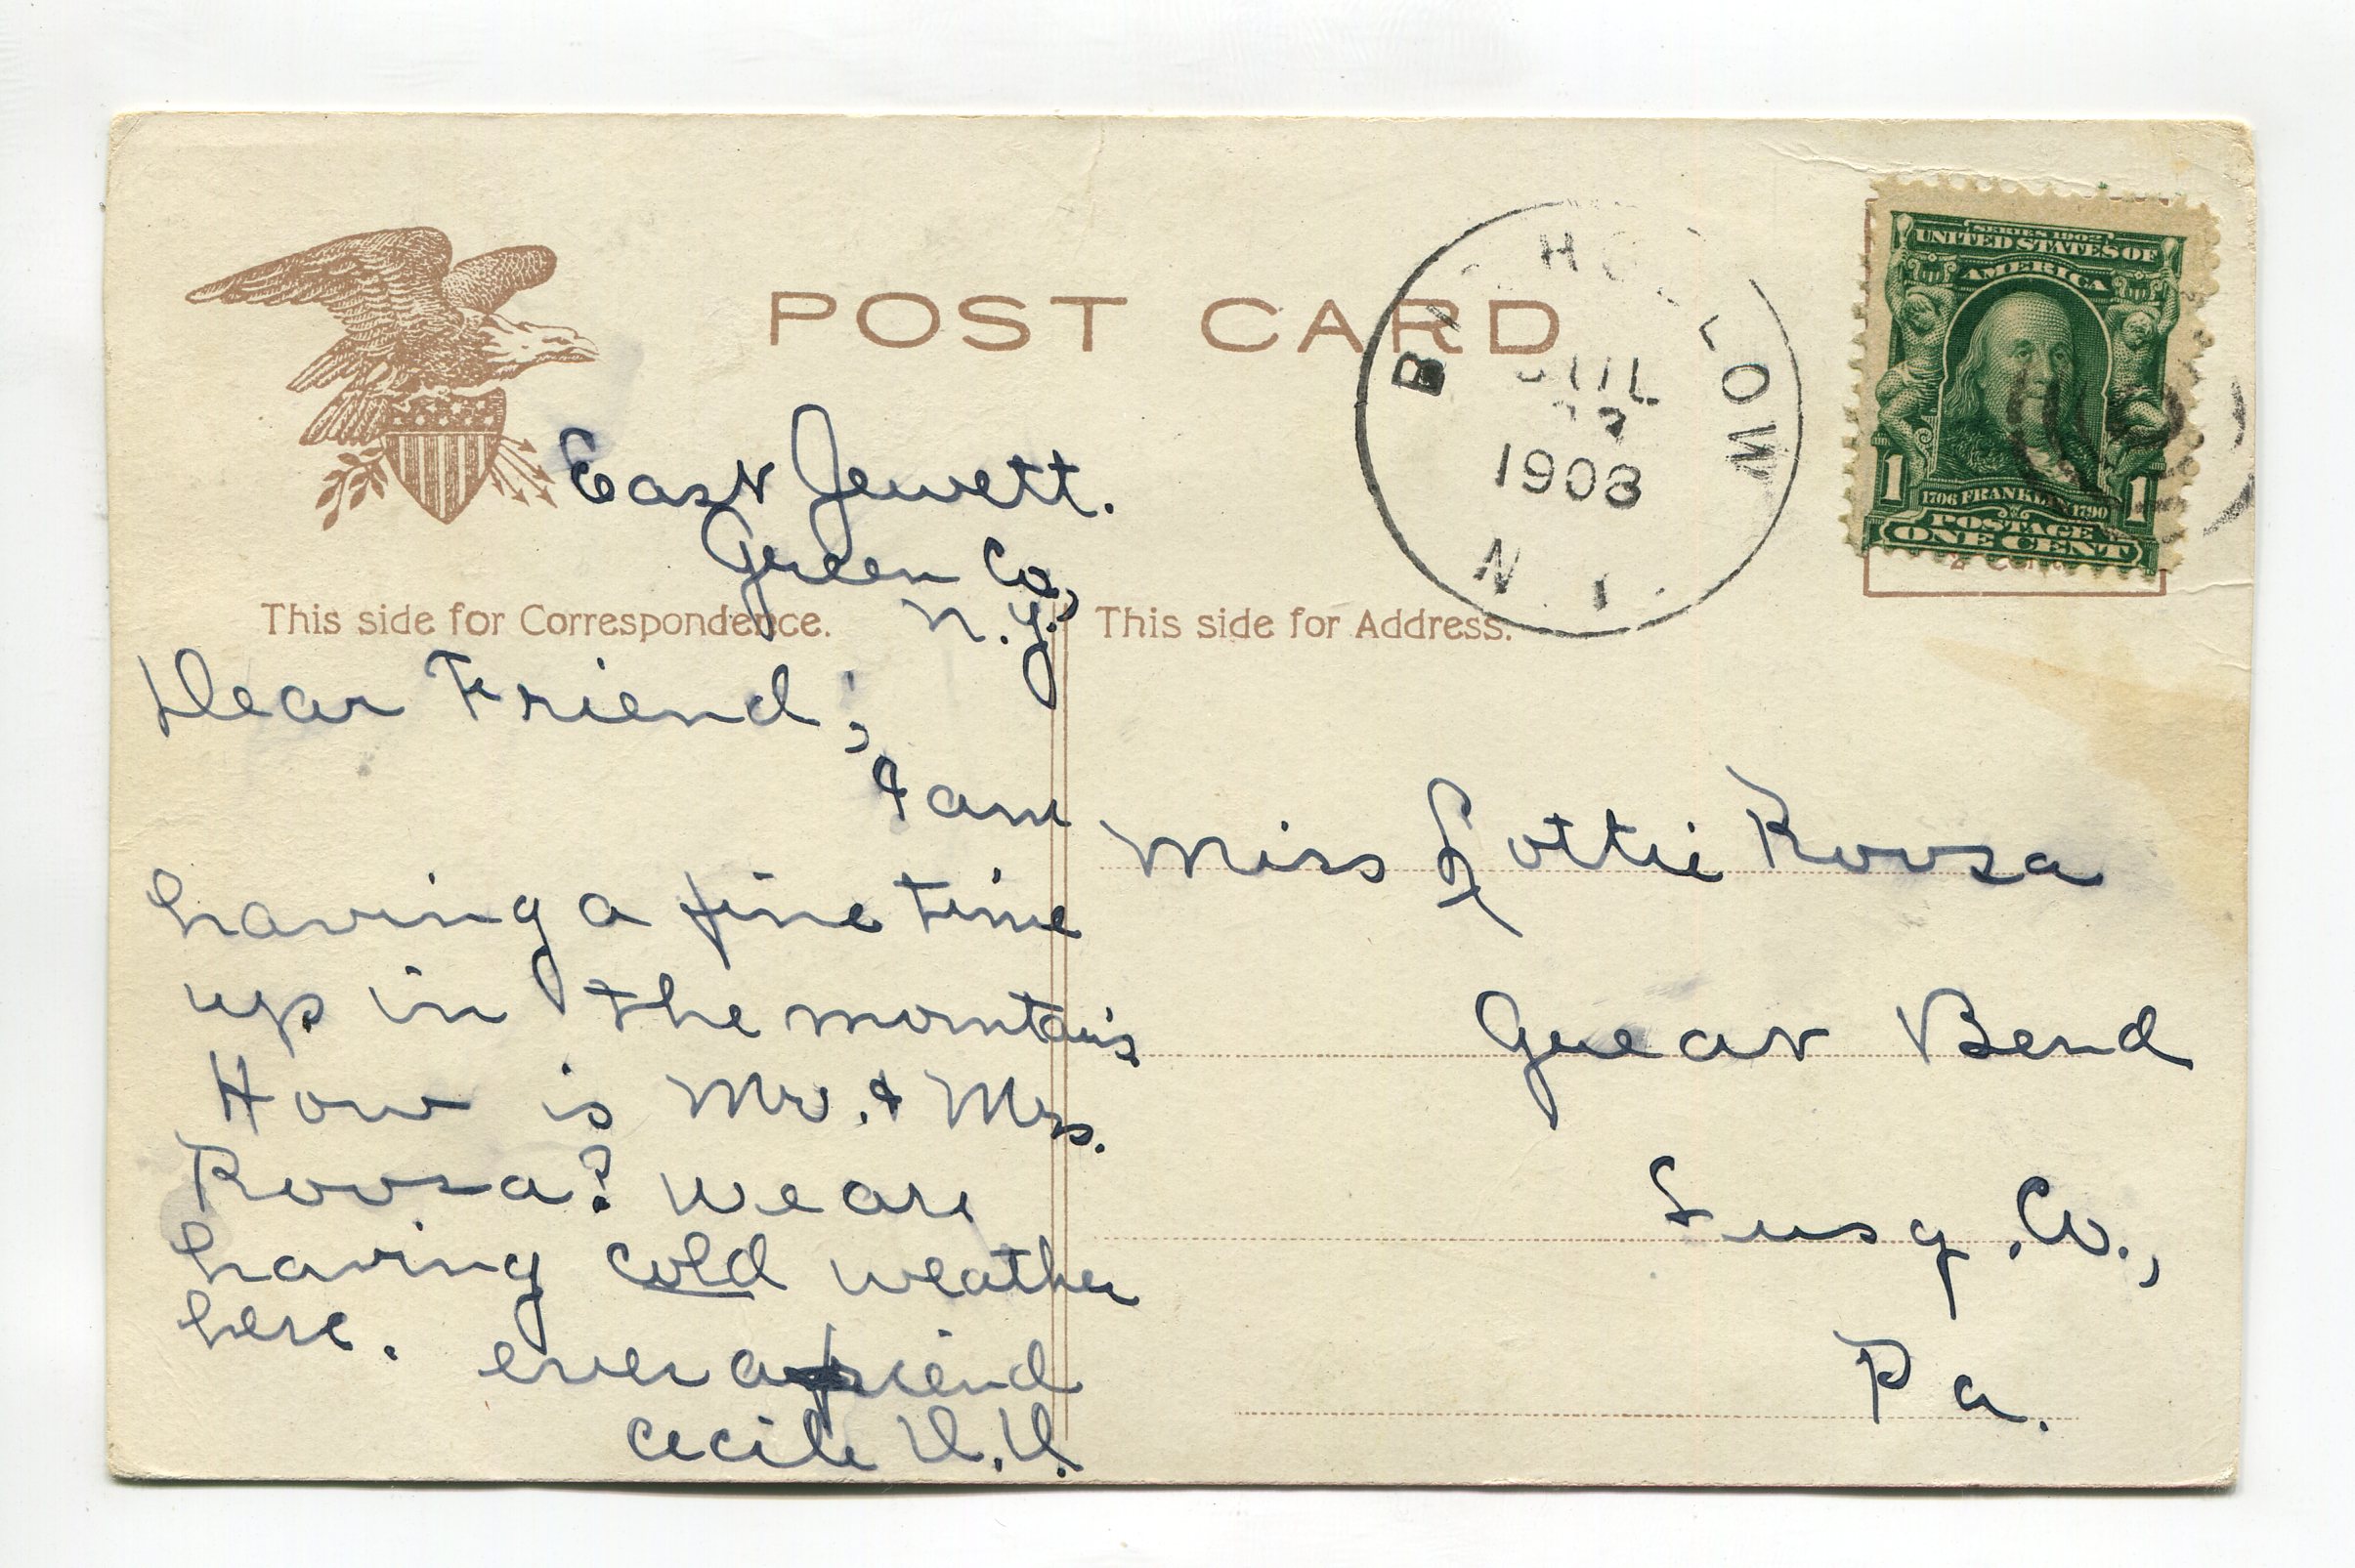 POST CARD
HOLLOW
JUL
1908
N
SERIES 1902
UNITED STATES OF
AMERICA
1 1
1706 FRANKLIN 1790
POSTAGE
ONE CENT
East Jewett.
Green Co,
N.Y.
This side for Correspondence.
This side for Address.
Dear Friend;
I am
having a fine time
up in the mountains
How is Mr. & Mrs.
Roosa? We are
having cold weather
here.
ever a friend
Cecile
Miss Lottie Roosa
Great Bend
Susq. Co.,
Pa.